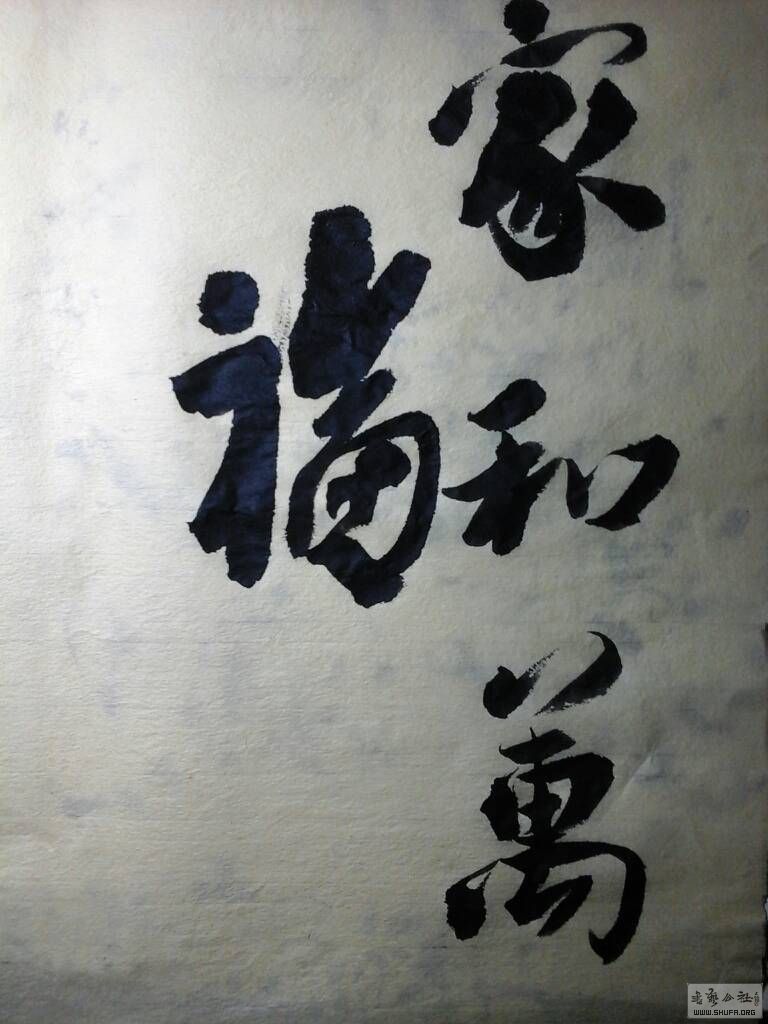 家和萬
福
書藝公社
WWW.SHUFA.ORG